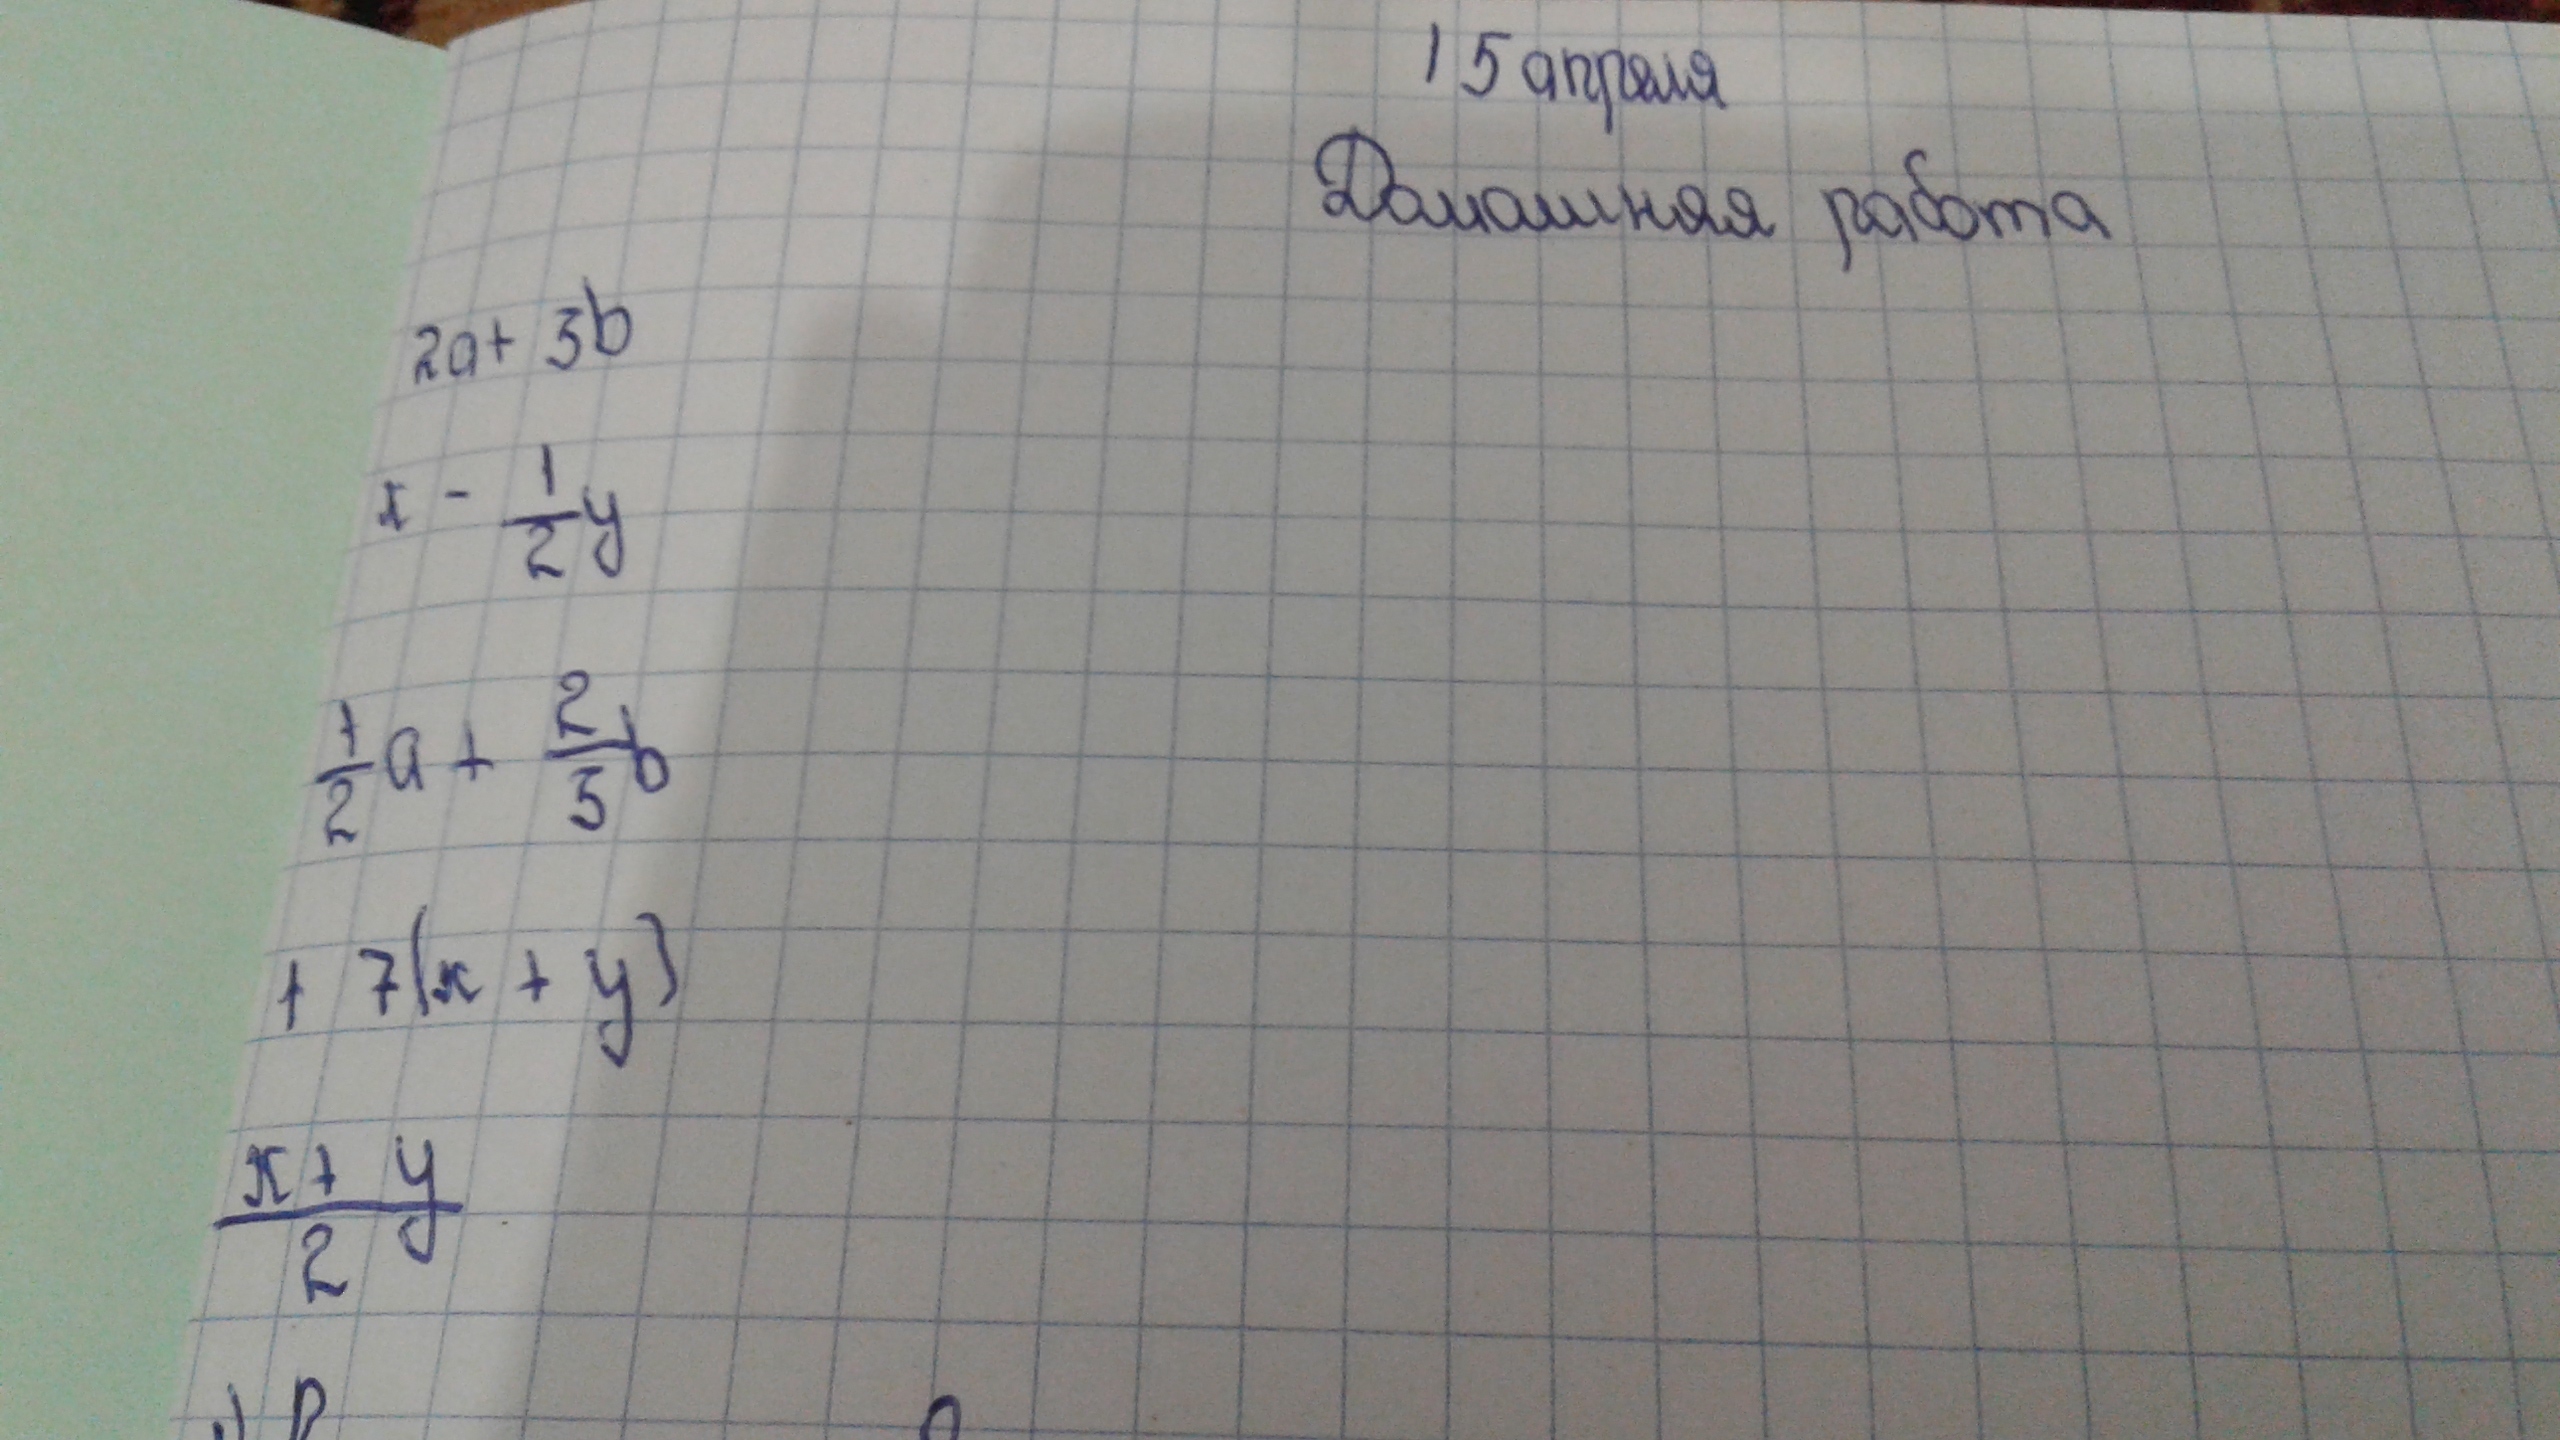 15 апреля
Домашняя работа
2a + 3b
x - 1/2 y
1/2 a + 2/3 b
+ 7(x + y)
x + y / 2